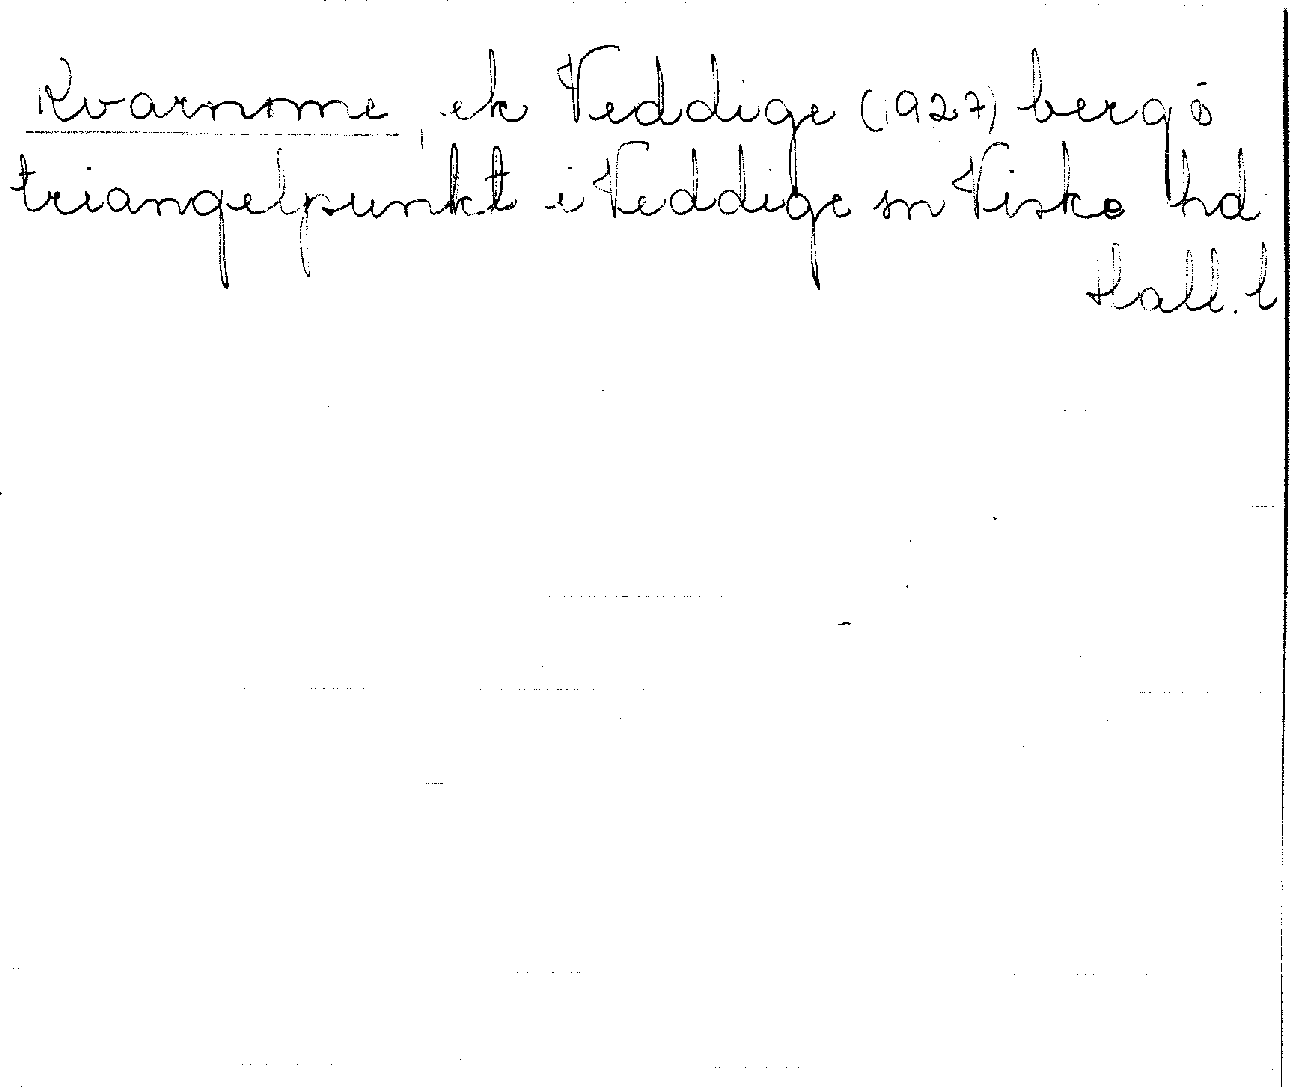 Kvarnome, ek Veddige (1927) berg o
triangelpunkt i Veddige sn Viske hd
Hall. l